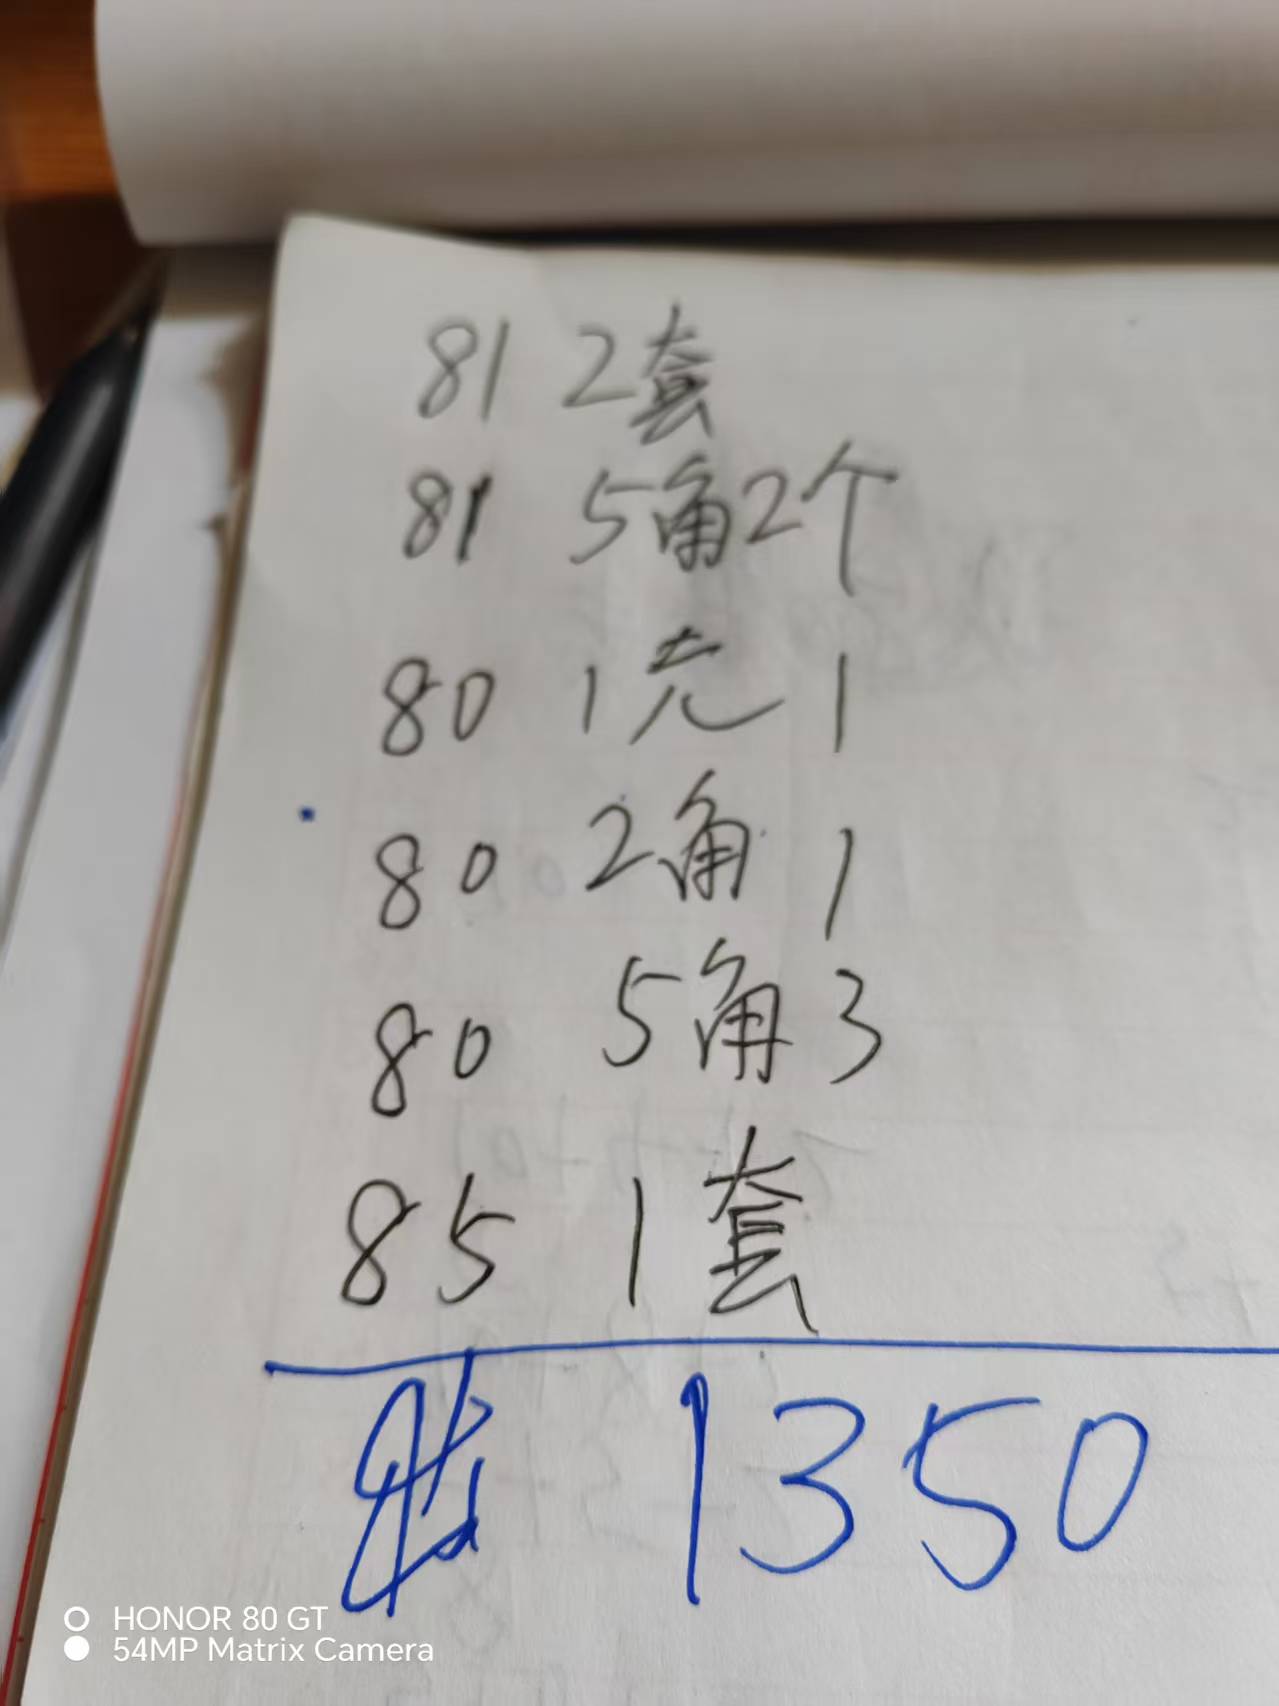 81 2套
81 5角2个
80 1元 1
80 2角 1
80 5角3
85 1套
1350
HONOR 80 GT
54MP Matrix Camera